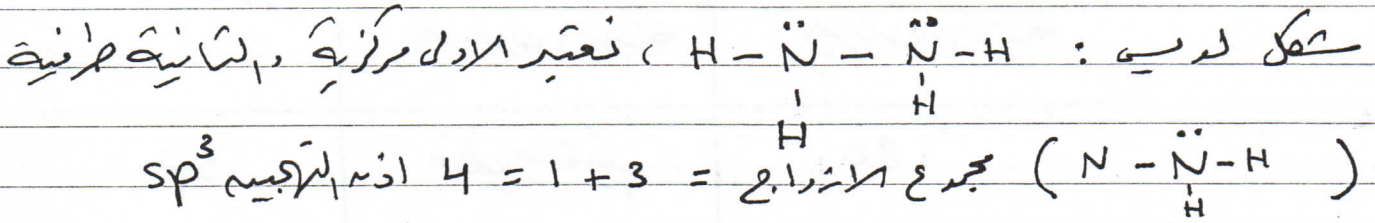 شكل لويس : H - N̈ - N̈ - H ، نعتبر الاولى مركزية والثانية طرفية
H H
( N - N̈ - H ) مجموع الازدواج = 3 + 1 = 4 اذن التهجين sp³
H